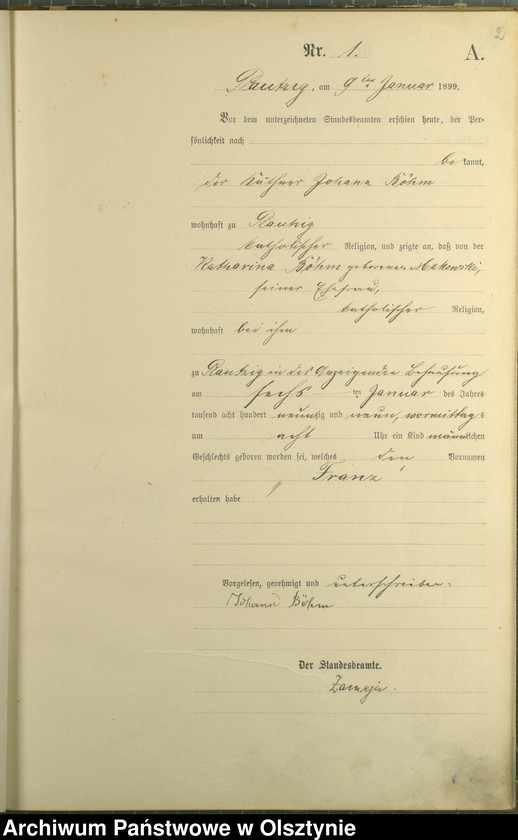 2
Nr. 1. A.
Rautzig, am 9ten Januar 1899.
Vor dem unterzeichneten Standesbeamten erschien heute, der Per-
sönlichkeit nach
be kannt,
der Käthner Johann Böhm
wohnhaft zu Rautzig
katholischer Religion, und zeigte an, daß von der
Katharina Böhm geborenen Makowski,
seiner Ehefrau,
katholischer Religion,
wohnhaft bei ihm
zu Rautzig in des Anzeigenden Behausung
am sechs ten Januar des Jahres
tausend acht hundert neunzig und neun, vormittags
um acht Uhr ein Kind männlichen
Geschlechts geboren worden sei, welches den Vornamen
" Franz "
erhalten habe
Vorgelesen, genehmigt und unterschrieben:
Johann Böhm
Der Standesbeamte.
Archiwum Państwowe w Olsztynie